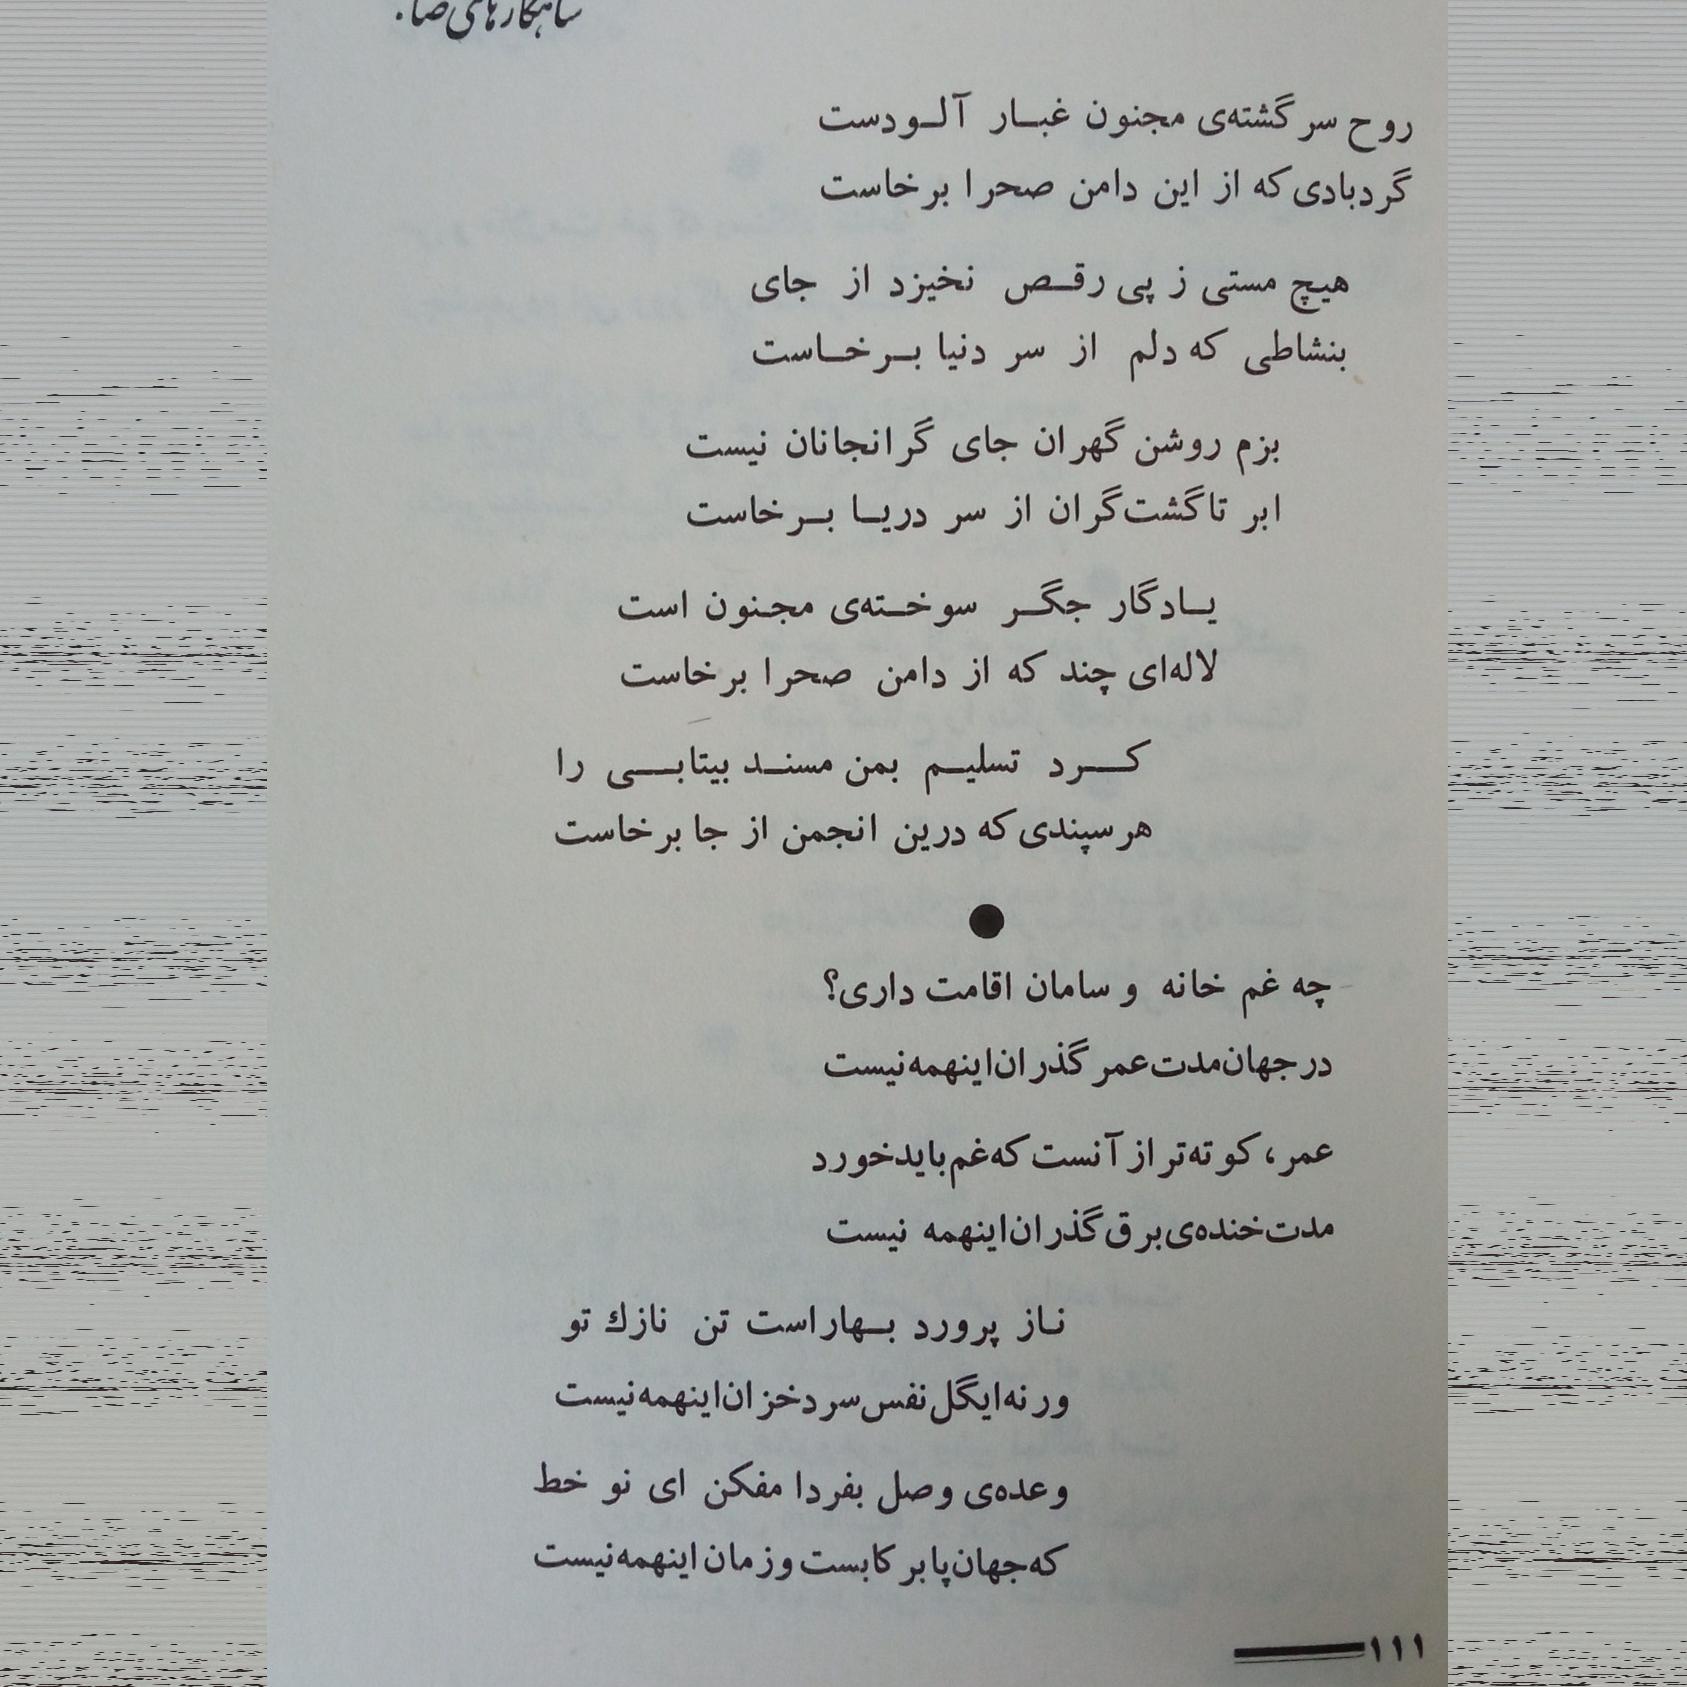 شاهکارهای
روح سرگشته‌ی مجنون غبار آلودست
گردبادی که از این دامن صحرا برخاست
هیچ مستی ز پی رقص نخیزد از جای
بنشاطی که دلم از سر دنیا برخاست
بزم روشن گهران جای گرانجانان نیست
ابر تا گشت گران از سر دریا برخاست
یادگار جگر سوخته‌ی مجنون است
لاله‌ای چند که از دامن صحرا برخاست
کرد تسلیم بمن مسند بیتابی را
هر سپندی که درین انجمن از جا برخاست
چه غم خانه و سامان اقامت داری؟
در جهان مدت عمر گذران اینهمه نیست
عمر، کوته‌تر از آنست که غم باید خورد
مدت خنده‌ی برق گذران اینهمه نیست
ناز پرورد بهار است تن نازك تو
ورنه ایگل نفس سرد خزان اینهمه نیست
وعده‌ی وصل بفردا مفکن ای نو خط
که جهان پا بر کابست و زمان اینهمه نیست
۱۱۱